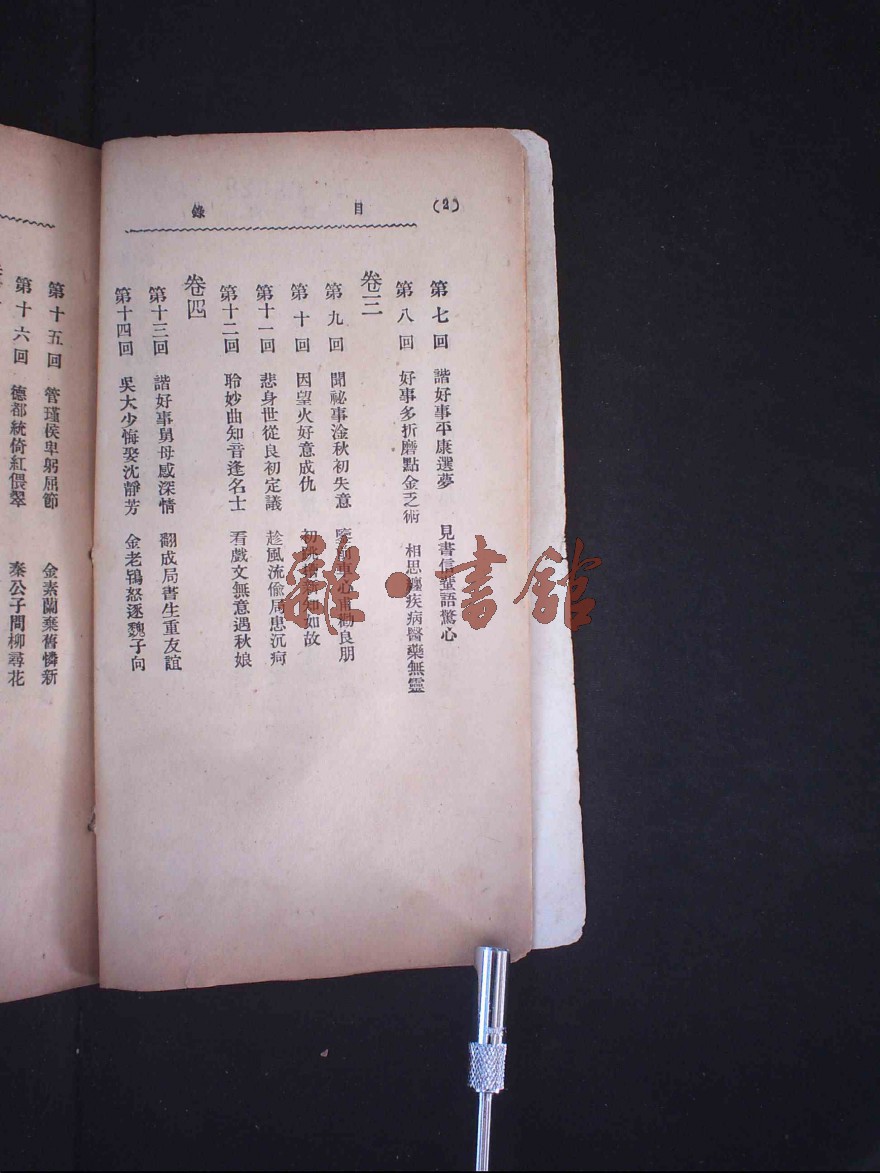 目錄 (2)
第七回 諧好事平康選夢 見書信蜚語驚心
第八回 好事多折磨點金乏術 相思纏疾病醫藥無靈
卷三
第九回 聞祕事淦秋初失意 心甫勸良朋
第十回 因望火好意成仇 初 如故
第十一回 悲身世從良初定議 趁風流偷局患沉疴
第十二回 聆妙曲知音逢名士 看戲文無意遇秋娘
卷四
第十三回 諧好事舅母感深情 翻成局書生重友誼
第十四回 吳大少悔娶沈靜芳 金老鴇怒逐魏子向
第十五回 管瑾侯卑躬屈節 金素蘭棄舊憐新
第十六回 德都統倚紅偎翠 秦公子問柳尋花
雜·書館